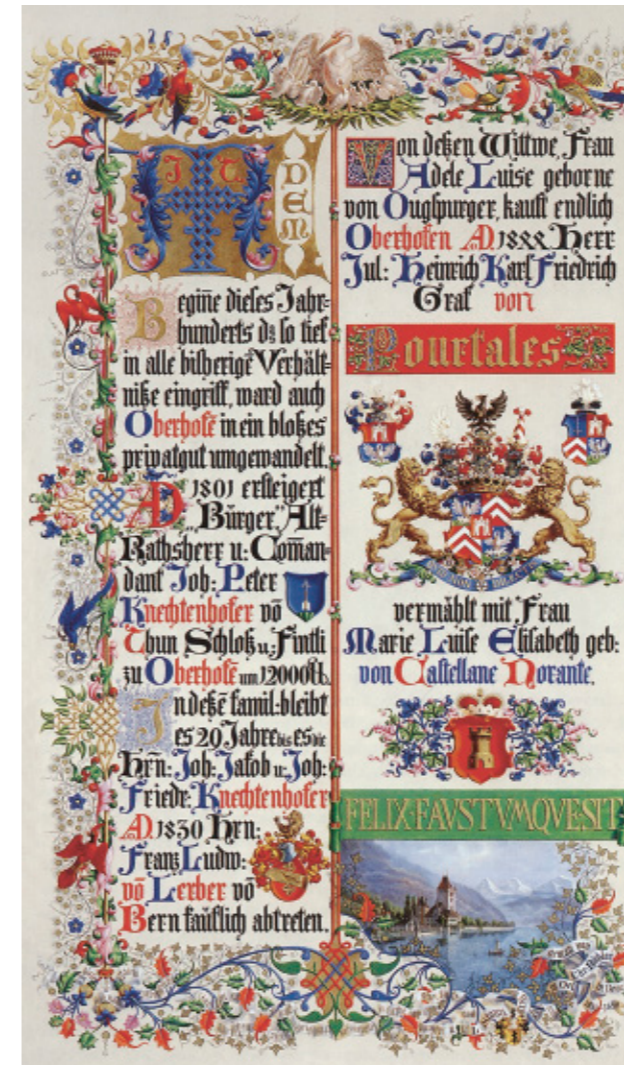 MIT
DEM
Begiñe dieses Jahr=
hunderts dz so tief
in alle bisherigē Verhält=
niße eingriff, ward auch
Oberhofē in ein bloßes
privatgut umgewandelt.
AD 1801 ersteigert
„Bürger„ Alt=
Rathsherr u: Com̄an=
dant Joh: Peter
Knechtenhofer vō
Thun Schloß u: Fintli
zu Oberhofē um 12000 lb.
In deßē famil: bleibt
es 20 Jahre bis es die
Hrn: Joh: Jakob u: Joh:
Friedr: Knechtenhofer
AD. 1830 Hrn:
Franz Ludw:
vō Lerber vō
Bern käuflich abtreten.
Von deßen Wittwe, Frau
Adele Luise geborne
von Ougspurger, kauft endlich
Oberhofen AD. 1844 Herr
Jul: Heinrich Karl Friedrich
Graf von
Pourtales
vermählt mit Frau
Marie Luise Elisabeth geb:
von Castellane Norante.
FELIX·FAVSTVMQVESIT